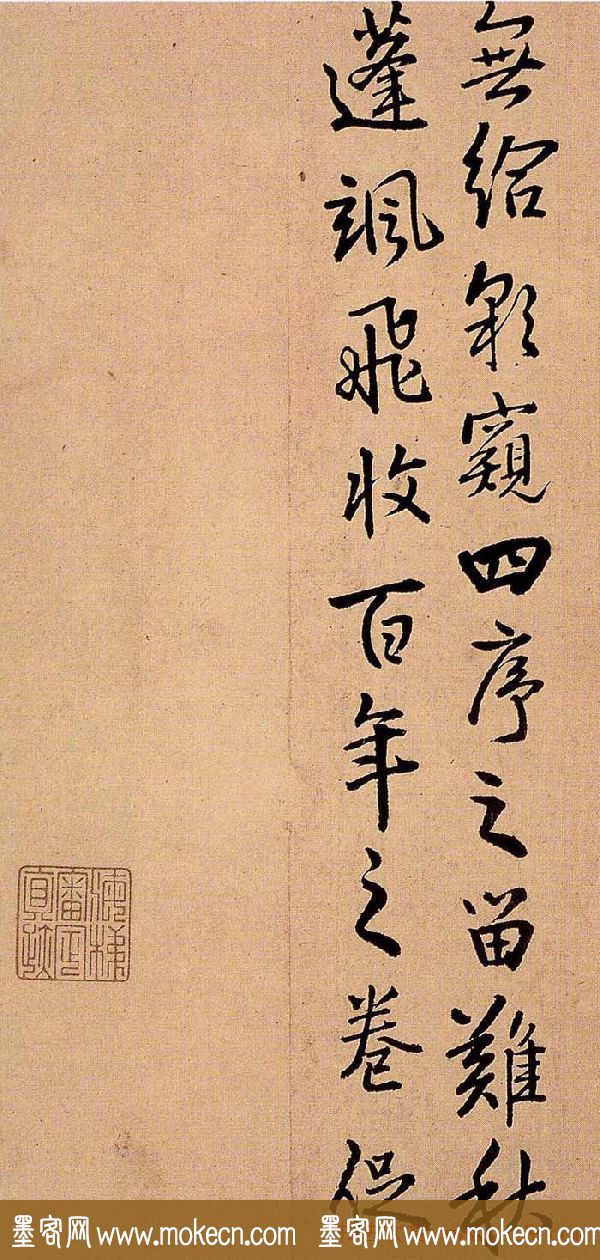 無給影窺四序之留難秋
蓬颯飛收百年之卷促
墨客网 www.mokecn.com 墨客网 www.mokecn.com